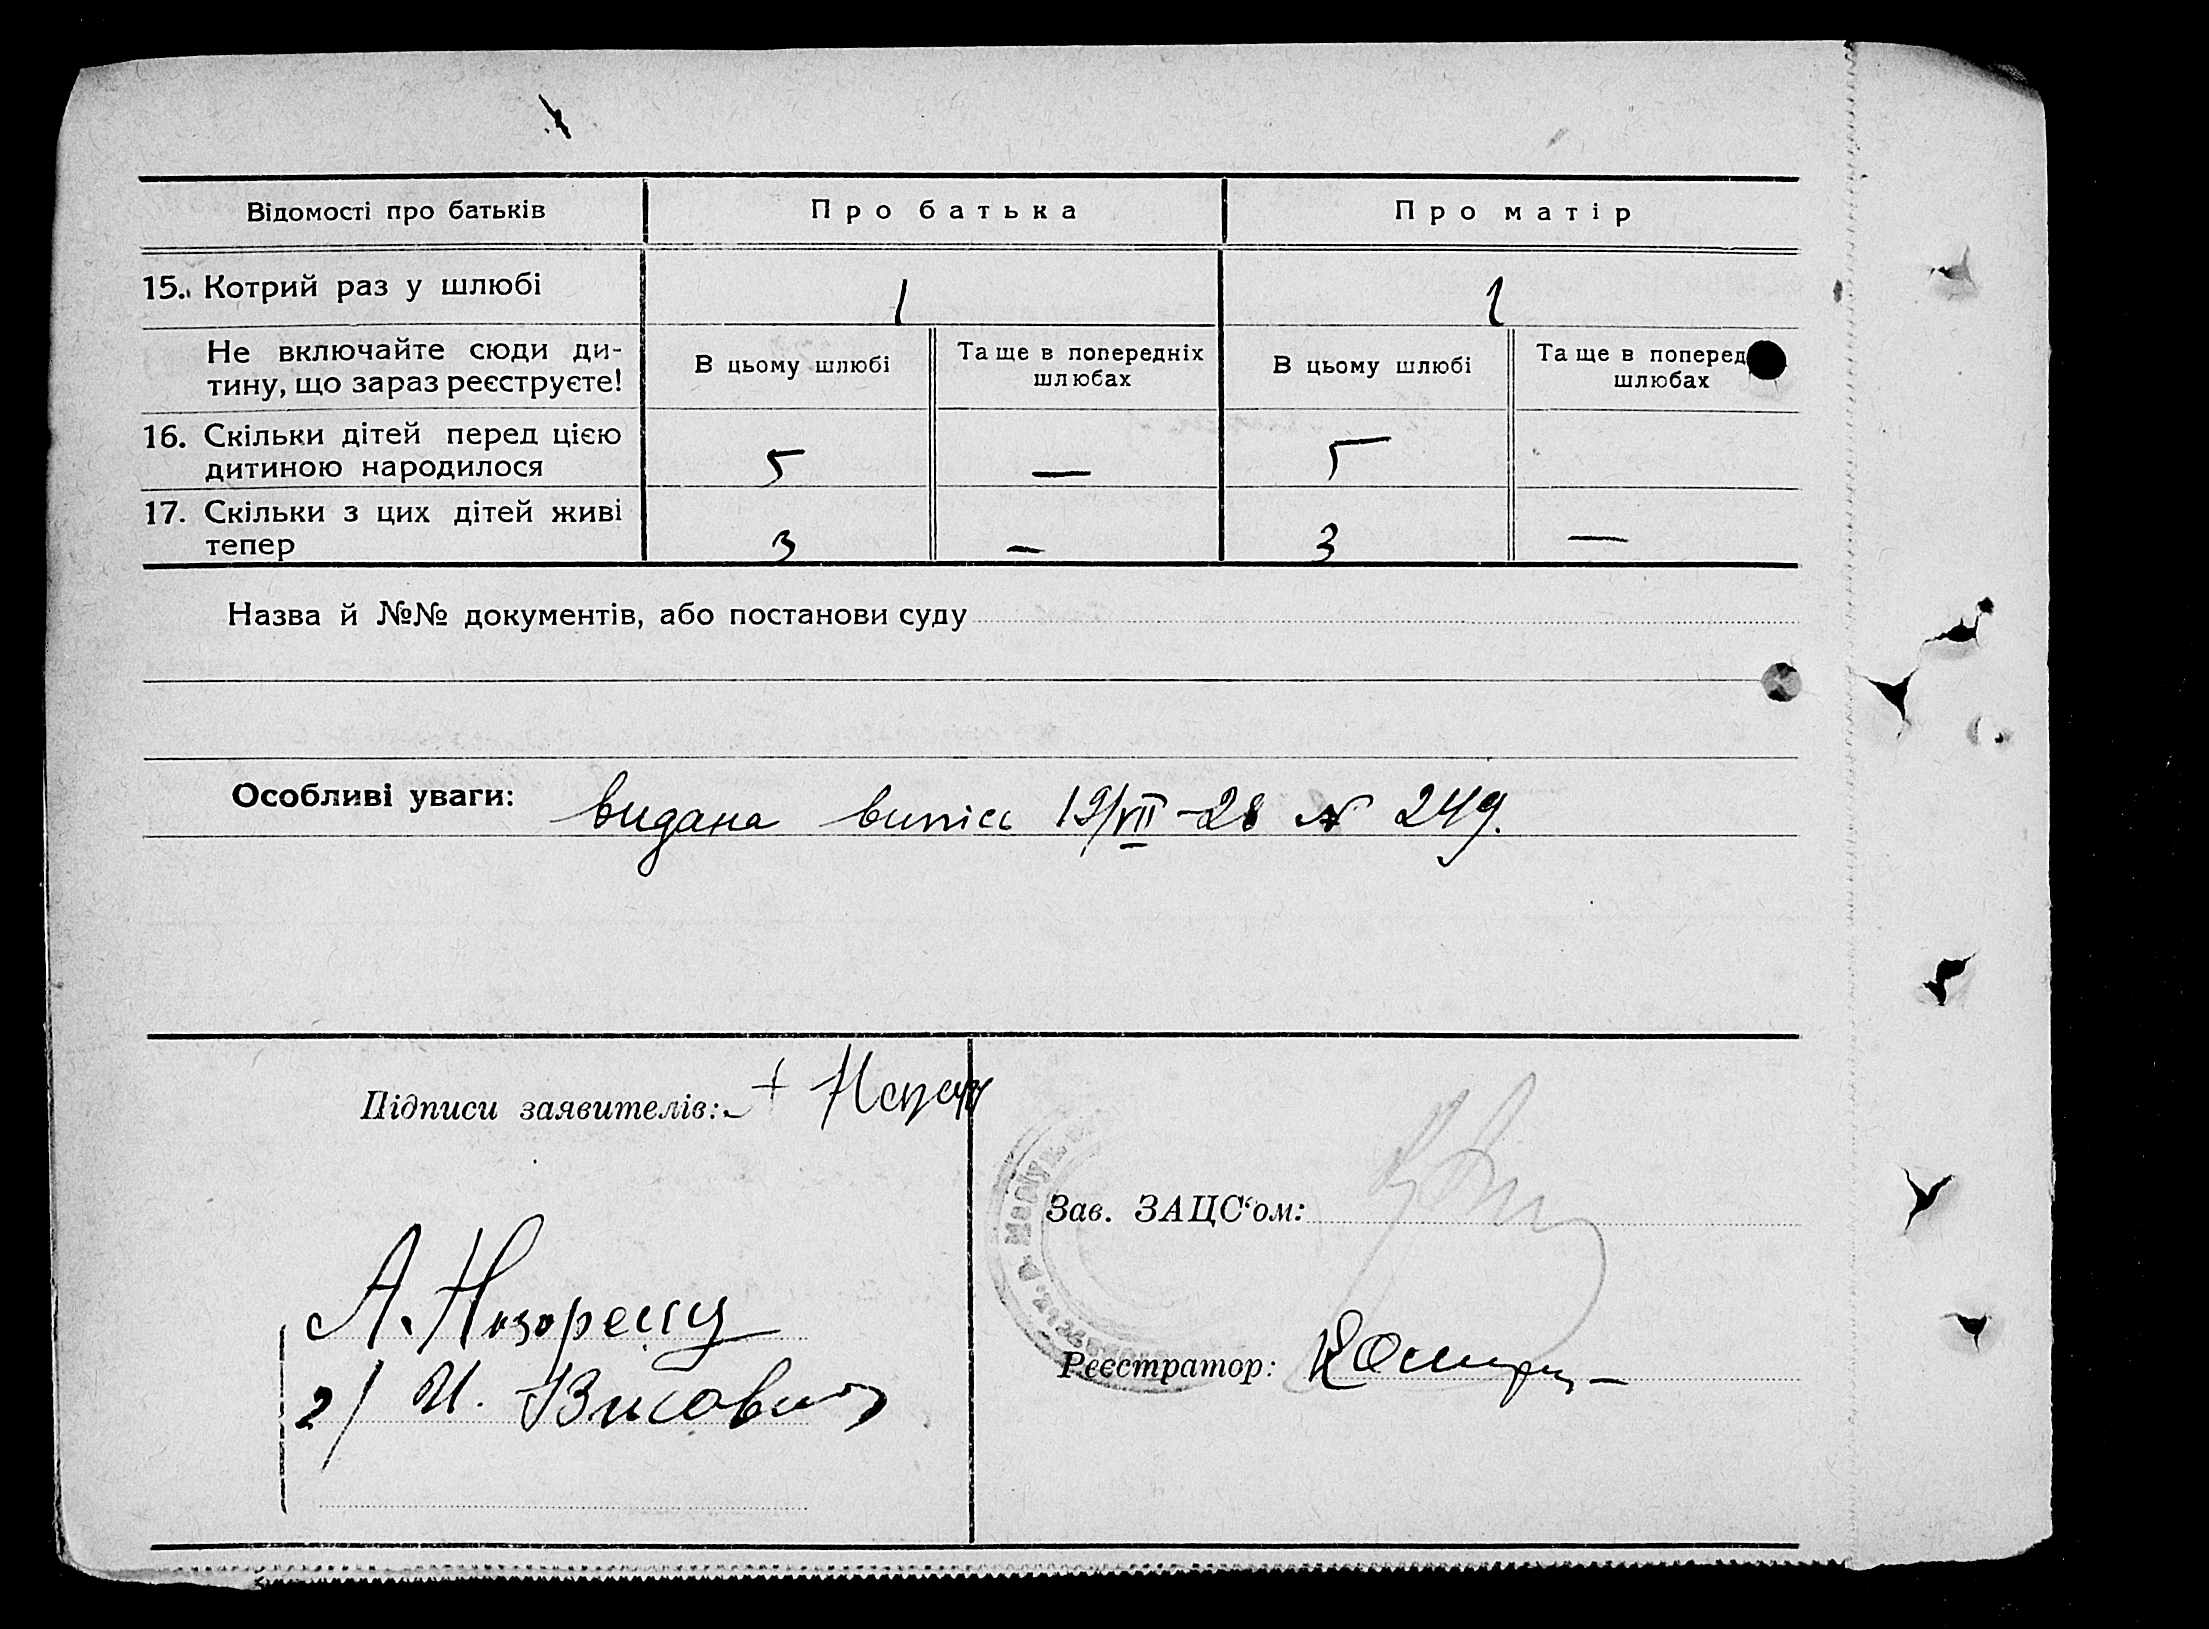 Відомості про батьків
Про батька
Про матір
15. Котрий раз у шлюбі
1
1
Не включайте сюди ди-
тину, що зараз реєструєте!
В цьому шлюбі
Та ще в попередніх
шлюбах
В цьому шлюбі
Та ще в поперед
шлюбах
16. Скільки дітей перед цією
дитиною народилося
5
—
5
17. Скільки з цих дітей живі
тепер
3
—
3
—
Назва й №№ документів, або постанови суду
Особливі уваги: видана випісь 19/VII-28 № 249.
Підписи заявителів: +
Зав. ЗАЦС‘ом:
А.
Реєстратор:
2) И.